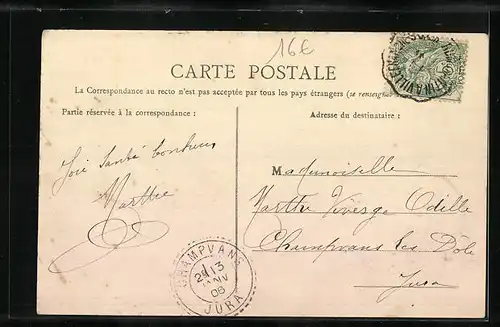 16€
CARTE POSTALE
La Correspondance au recto n'est pas acceptée par tous les pays étrangers (se renseigner
Partie réservée à la correspondance :
Adresse du destinataire :
Joie Santé bonheur
Marthe
Mademoiselle
Marthe Odille
Champvans les Dôle
Jura
CHAMPVANS
13
JANV
08
JURA